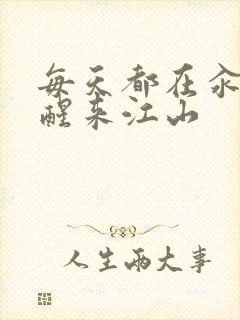 每天都在汆
醒来江山
人生两大事